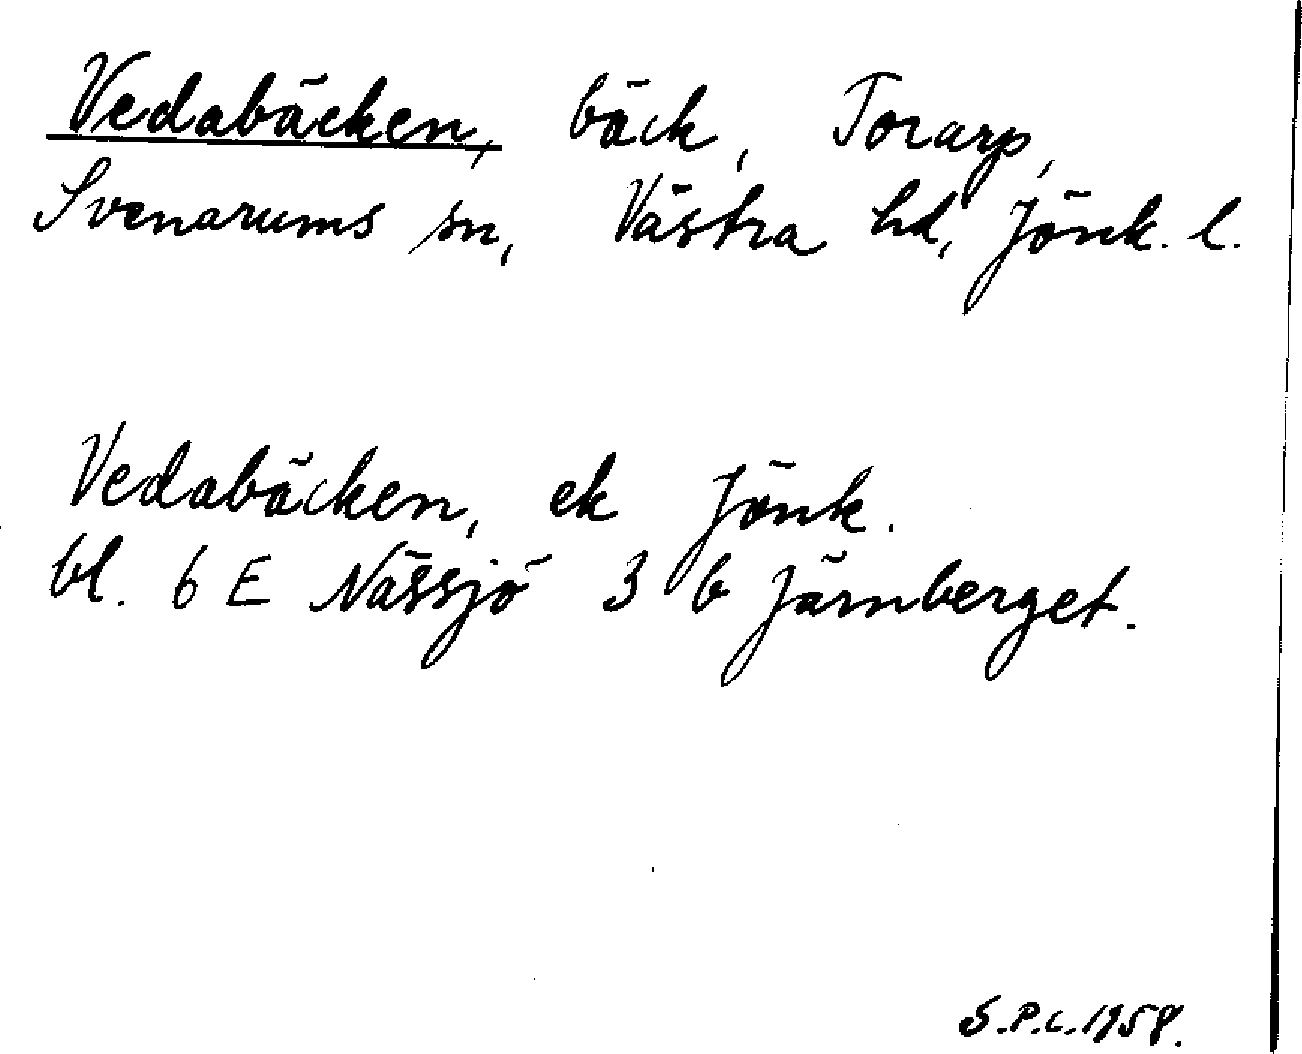 Vedabäcken, bäck, Torarp,
Svenarums sn, Västra hd, Jönk. l.
Vedabäcken, ek Jönk.
bl. 6 E Nässjö 3 b Järnberget.
S.P.C. 1958.